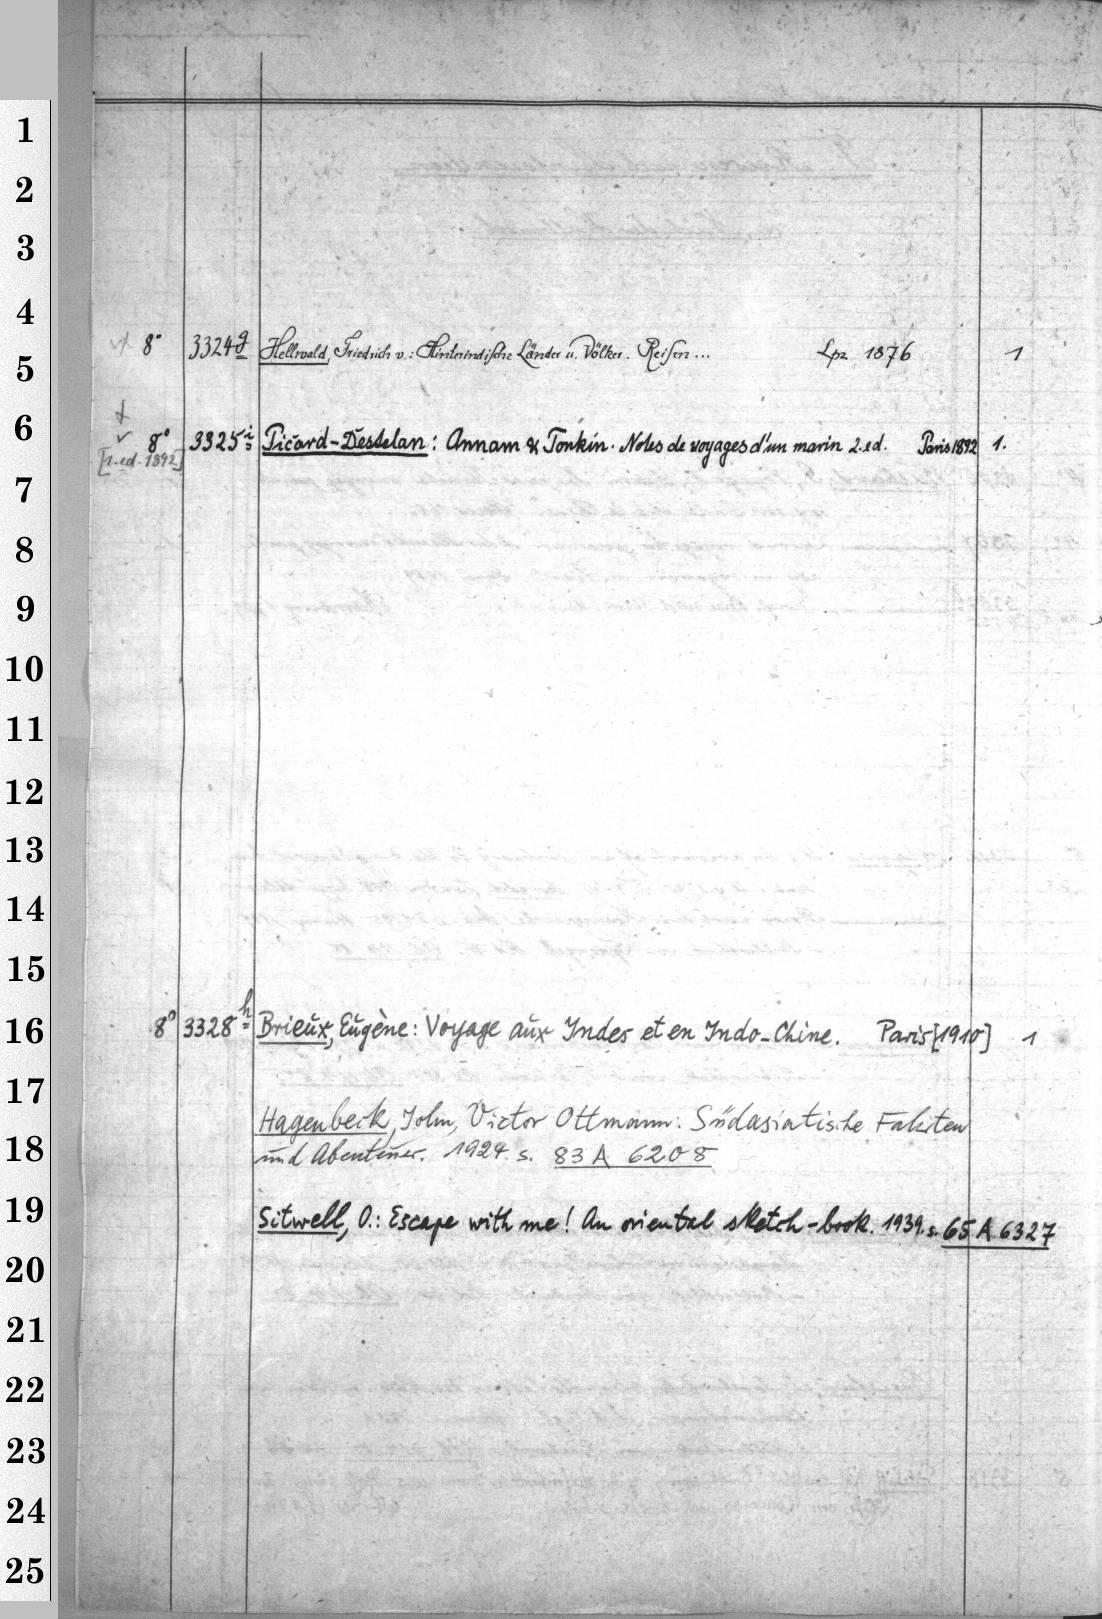 1
2
3
4
8° 3324g Hellwald, Friedrich v.: Hinterindische Länder u. Völker. Reisen ... Lpz 1876 1
5
6
8° 3325i Picard-Destelan: Annam & Tonkin. Notes de voyages d'un marin 2.ed. Paris 1892 1.
[1.ed. 1892]
7
8
9
10
11
12
13
14
15
16 8° 3328h Brieux, Eugène: Voyage aux Indes et en Indo-Chine. Paris [1910] 1
17
Hagenbeck, John, Victor Ottmann: Südasiatische Fahrten
18 und Abenteuer. 1924 s. 83 A 6208
19 Sitwell, O.: Escape with me! An oriental sketch-book. 1939. s. 65 A 6327
20
21
22
23
24
25